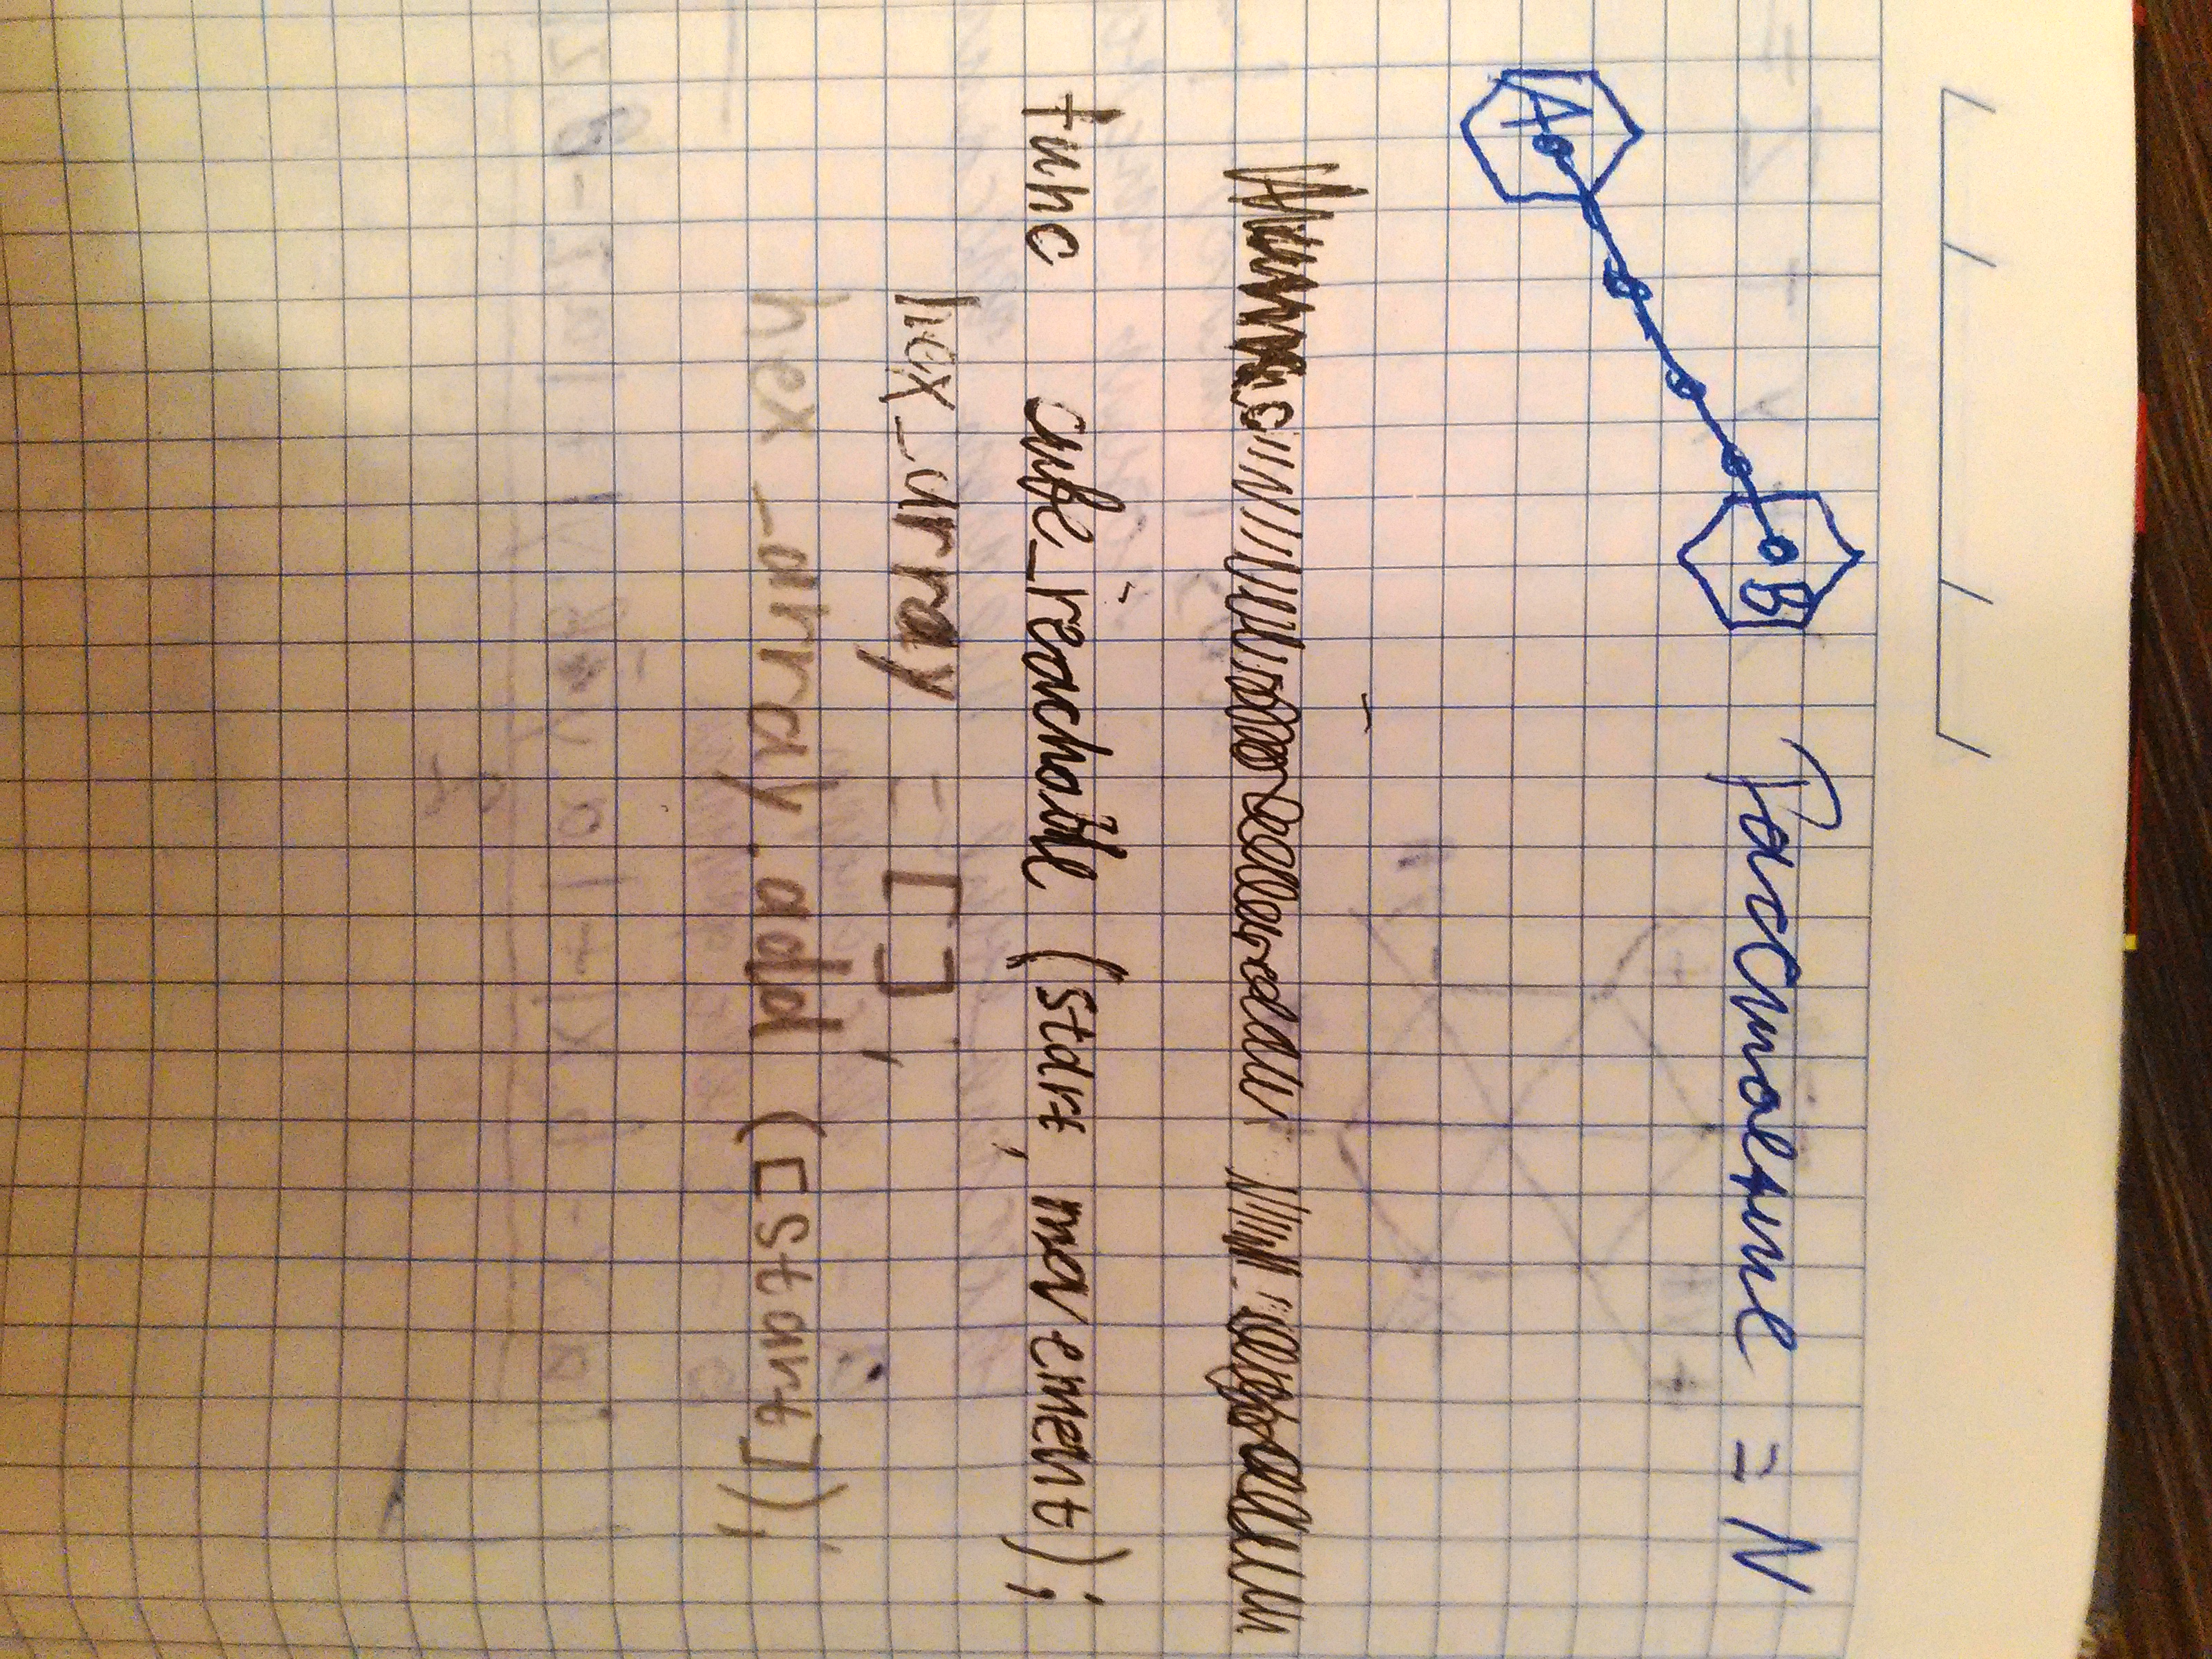 A B Расстояние = N
func cube_reachable (start, movement);
hex_array = [];
hex_array.add ([start]);